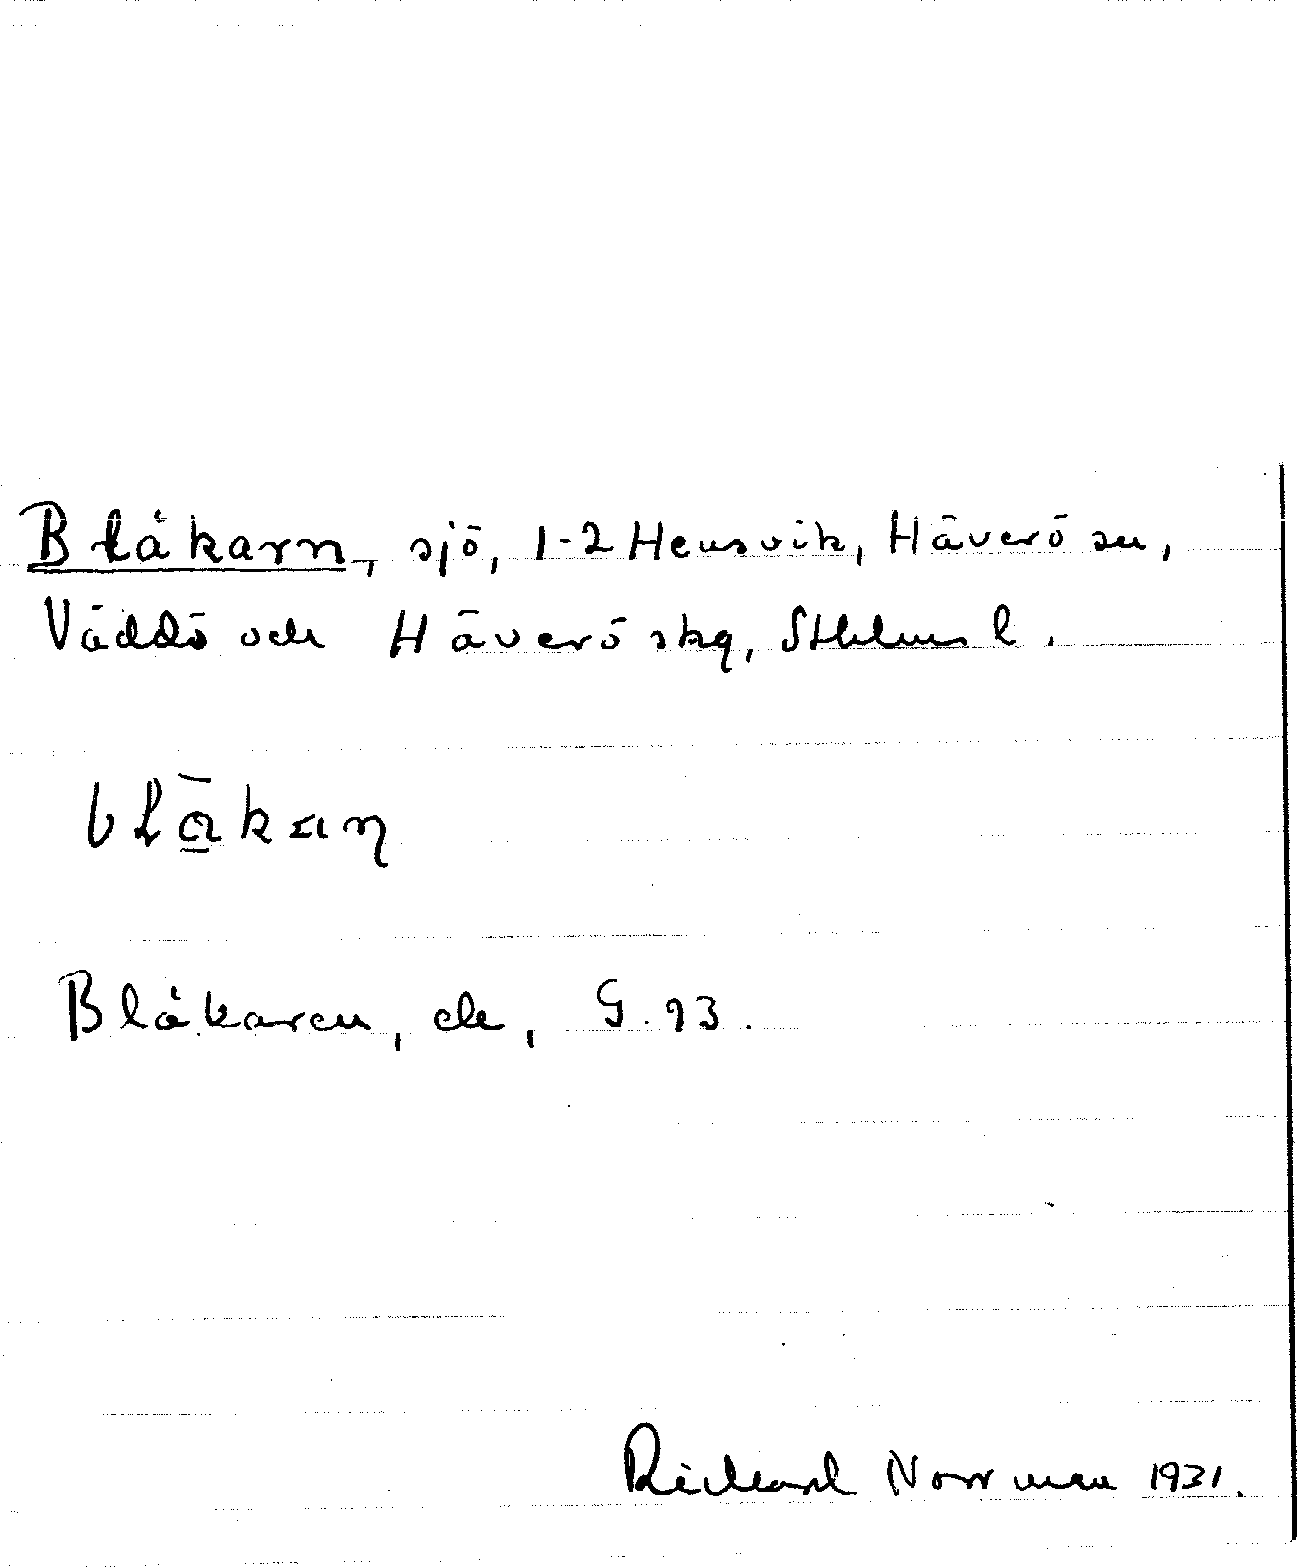 Blåkarn, sjö, 1-2 Hensvik, Häverö sn,
Väddö och Häverö skg, Sthlms l.
blākaɳ
Blåkaren, ek, G. 93.
Richard Norrman 1931.